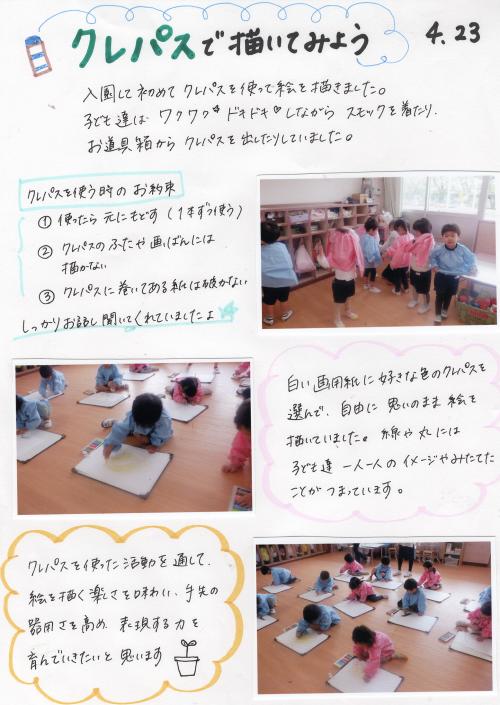 クレパスで描いてみよう
4.23
入園して初めて クレパスを使って絵を描きました。
子ども達は ワクワク♡ドキドキ♡しながら スモックを着たり、
お道具箱から クレパスを出したりしていました。
クレパスを使う時の お約束
① 使ったら 元にもどす (1本ずつ使う)
② クレパスの ふたや 画ばんには
描かない
③ クレパスに巻いてある紙は破かない
しっかりお話し聞いてくれていましたよ
白い画用紙に好きな色のクレパスを
選んで、自由に 思いのまま 絵を
描いていました。線や丸には
子ども達 一人一人の イメージやみたてた
ことが つまっています。
クレパスを使った活動を通して、
絵を描く楽しさを味わい、手先の
器用さを高め 表現する力を
育んでいきたいと思います